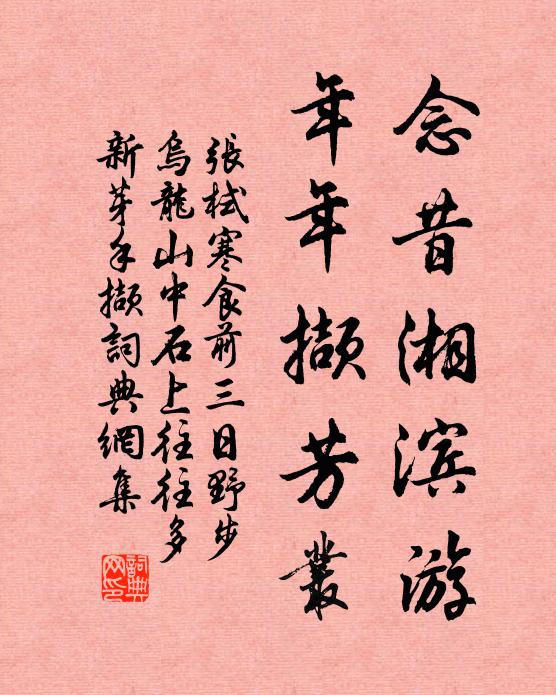 念昔湘滨游
年年擷芳叢
張栻寒食前三日野步
烏龍山中石上往往多
新芽手擷詞典網集
詞典网印